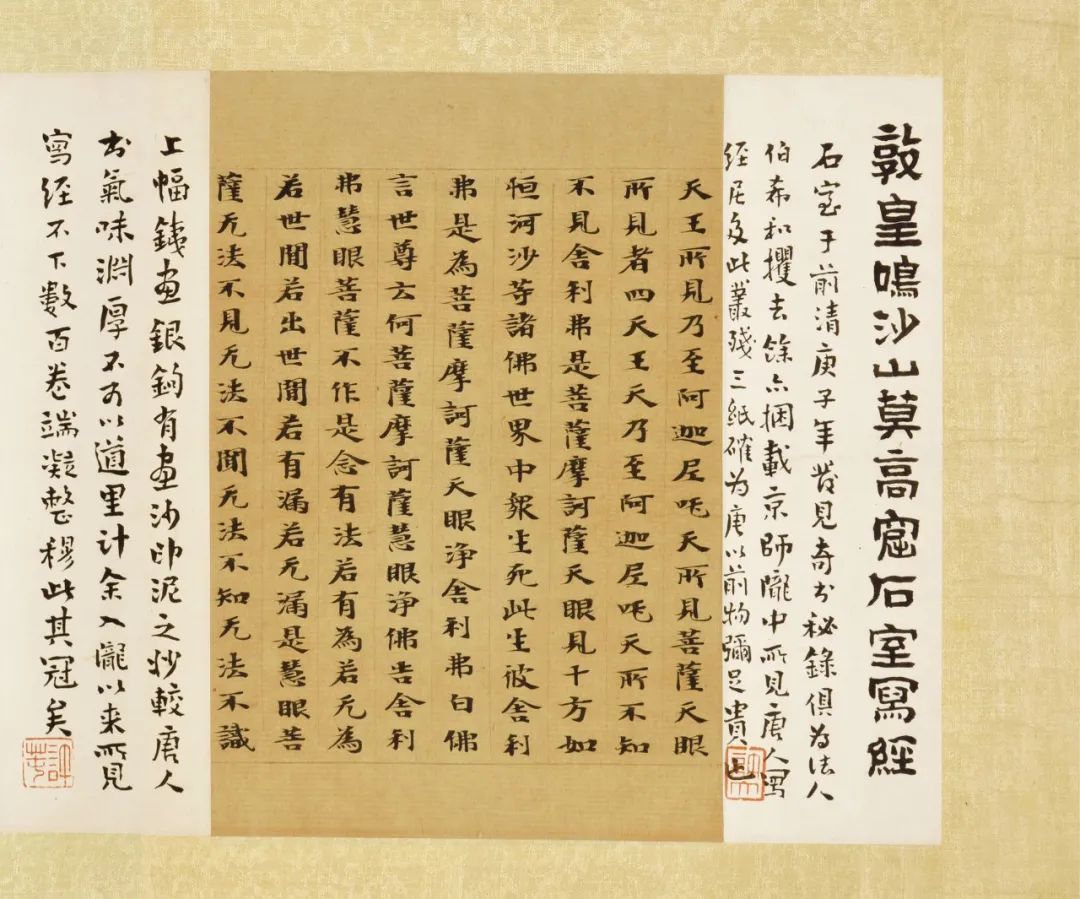 敦皇鳴沙山莫高窟石室寫經
石室于前清庚子年發見奇書秘錄俱为法人
伯希和攫去餘亦捆載京師隴中所見唐人寫
經居多此叢殘三紙確为唐以前物彌足貴也
天王所見乃至阿迦尼吒天所見菩薩天眼
所見者四天王天乃至阿迦尼吒天所不知
不見舍利弗是菩薩摩訶薩天眼見十方如
恒河沙等諸佛世界中眾生死此生彼舍利
弗是為菩薩摩訶薩天眼淨舍利弗白佛
言世尊云何菩薩摩訶薩慧眼淨佛告舍利
弗慧眼菩薩不作是念有法若有為若无為
若世間若出世間若有漏若无漏是慧眼菩
薩无法不見无法不聞无法不知无法不識
上幅鐵畫銀鉤有畫沙印泥之妙較唐人
书氣味淵厚不可以道里计余入隴以来所見
寫經不下數百卷端凝整穆此其冠矣